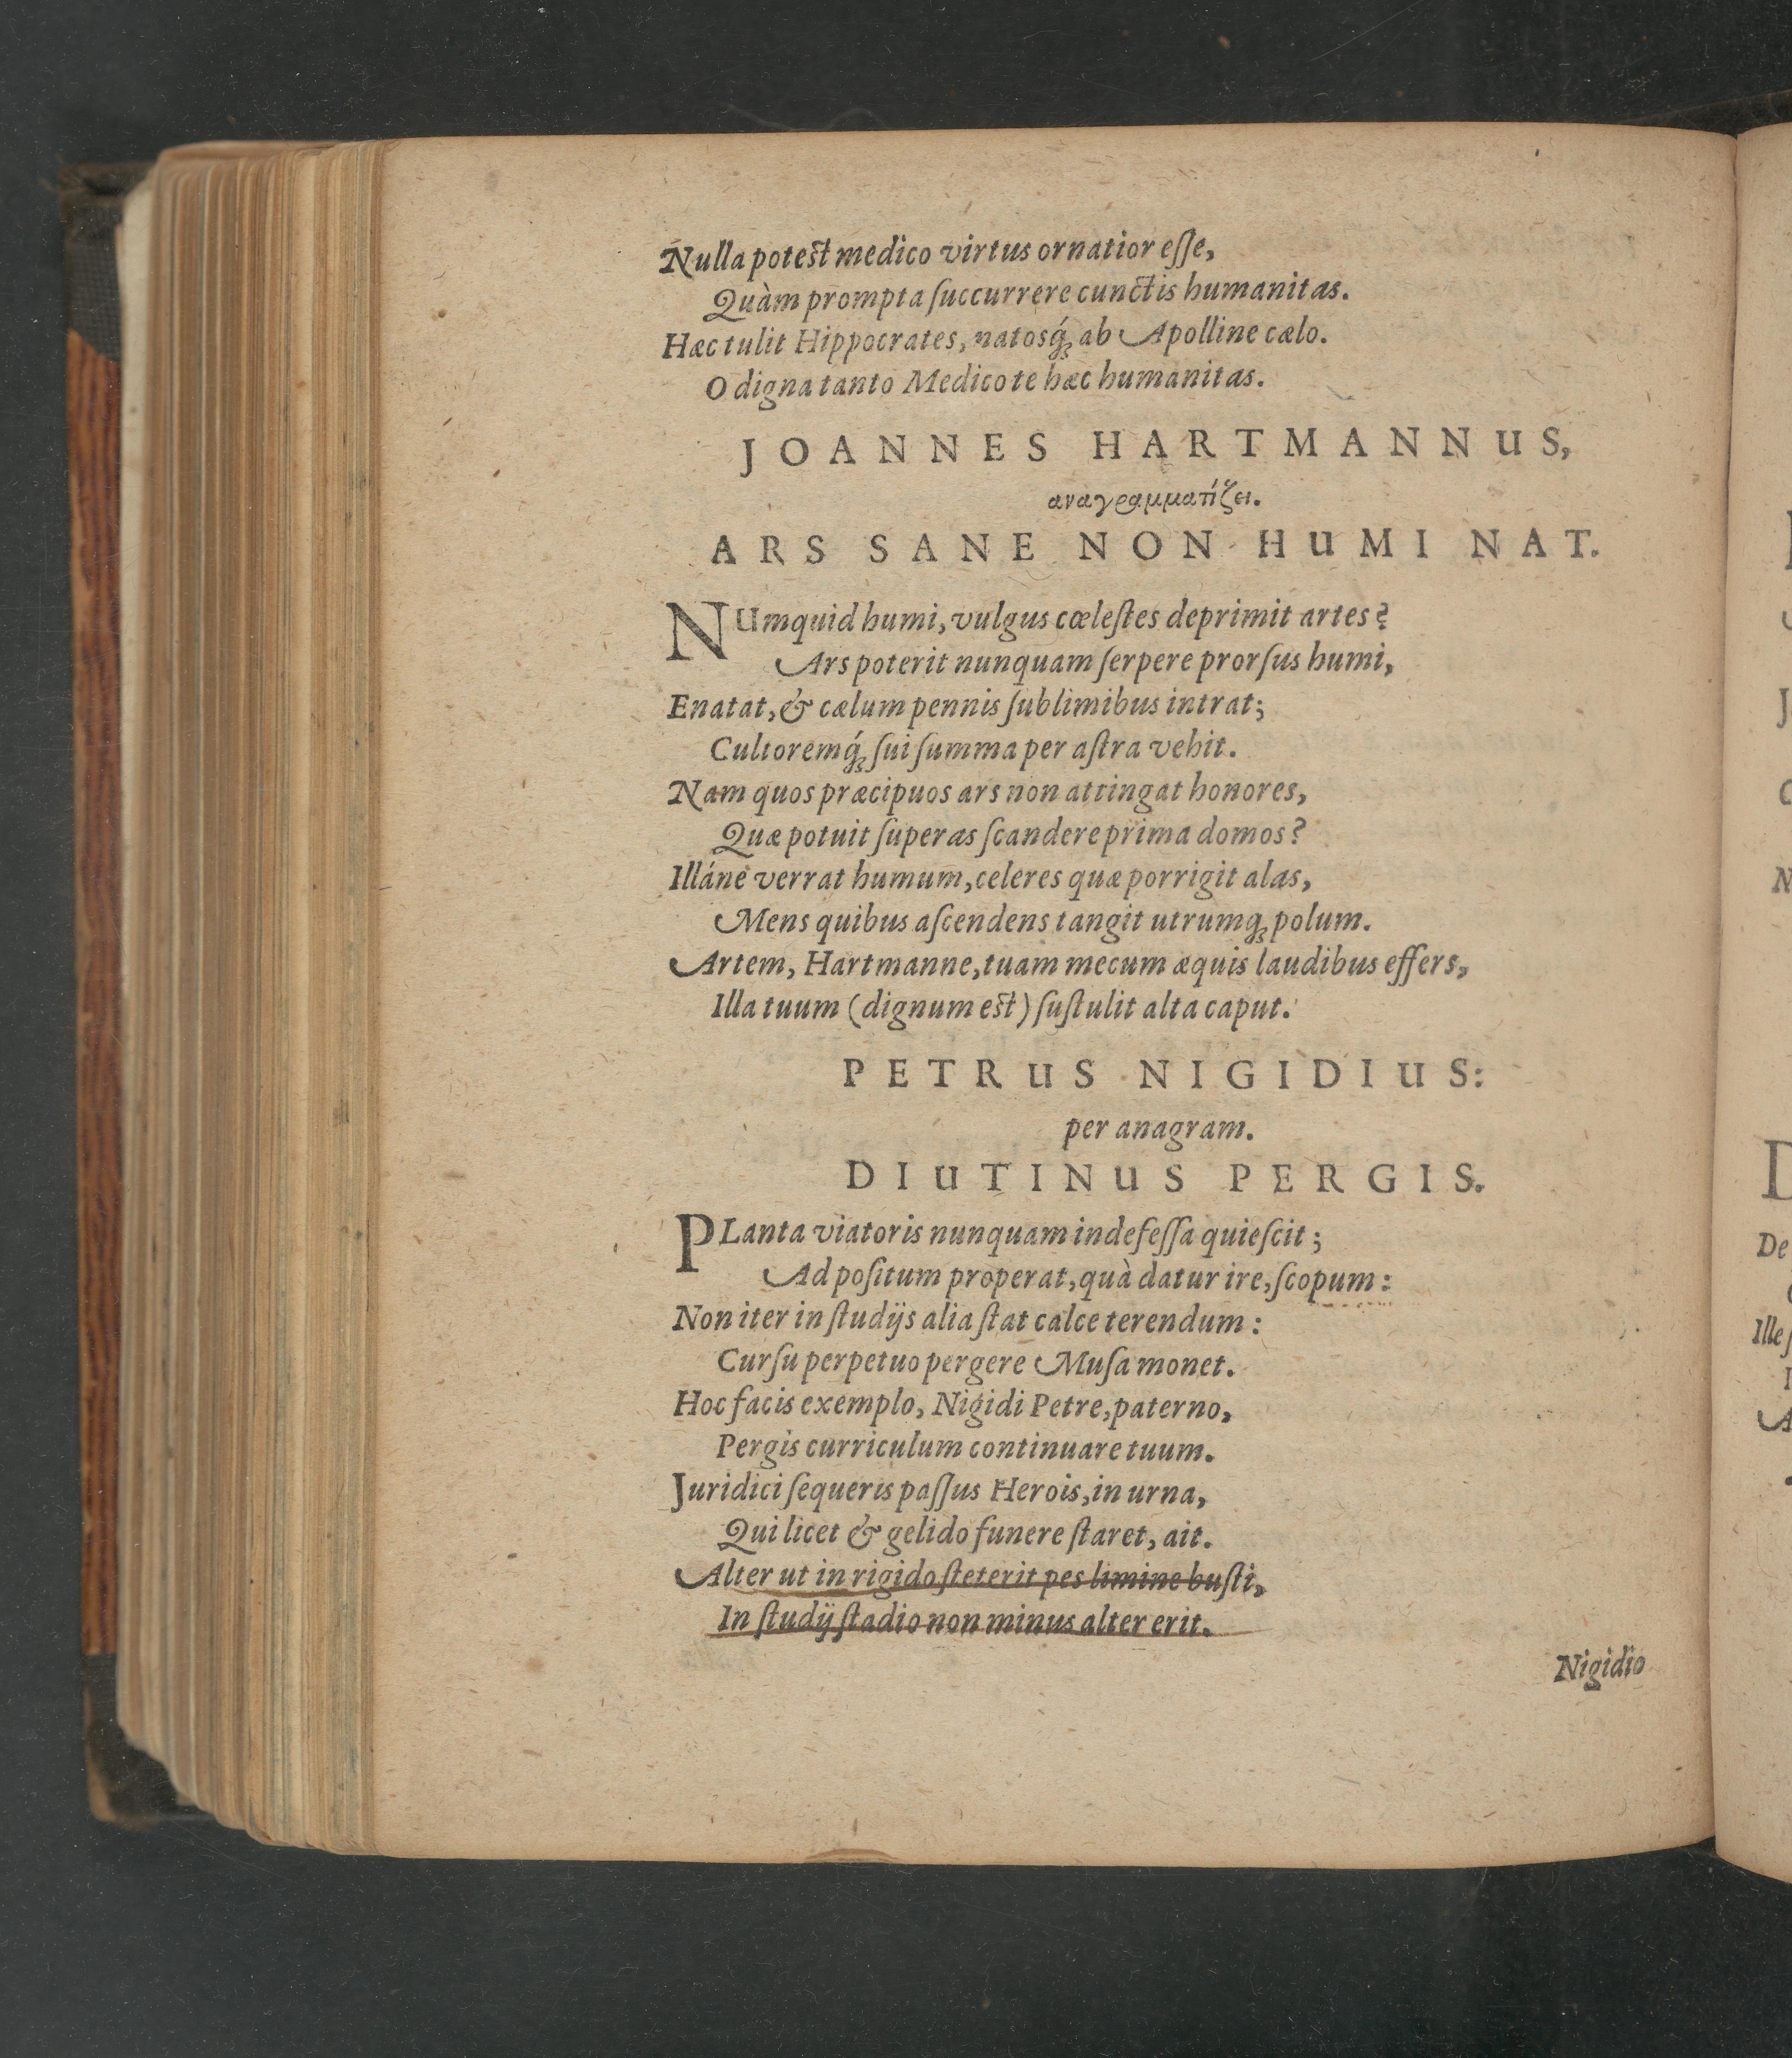 Nulla potest medico virtus ornatior eſſe,
Quàm prompta ſuccurrere cunctis humanitas.
Hæc tulit Hippocrates, natosq́ꝫ ab Apolline cælo.
O digna tanto Medico te hæc humanitas.
JOANNES HARTMANNUS,
αναγραμματίζει.
ARS SANE NON HUMI NAT.
NUmquid humi, vulgus cœleſtes deprimit artes?
Ars poterit nunquam ſerpere prorſus humi,
Enatat, & cælum pennis ſublimibus intrat;
Cultoremq́ꝫ ſui ſumma per aſtra vehit.
Nam quos præcipuos ars non attingat honores,
Quæ potuit ſuperas ſcandere prima domos?
Illáne verrat humum, celeres quæ porrigit alas,
Mens quibus aſcendens tangit utrumqꝫ polum.
Artem, Hartmanne, tuam mecum æquis laudibus effers,
Illa tuum (dignum est) ſuſtulit alta caput.
PETRUS NIGIDIUS:
per anagram.
DIUTINUS PERGIS.
PLanta viatoris nunquam indefeſſa quieſcit;
Ad poſitum properat, quà datur ire, ſcopum:
Non iter in ſtudijs alia ſtat calce terendum:
Curſu perpetuo pergere Muſa monet.
Hoc facis exemplo, Nigidi Petre, paterno,
Pergis curriculum continuare tuum.
Juridici ſequeris paſſus Herois, in urna,
Qui licet & gelido funere ſtaret, ait.
Alter ut in rigido ſteterit pes limine buſti,
In ſtudij ſtadio non minus alter erit.
Nigidio